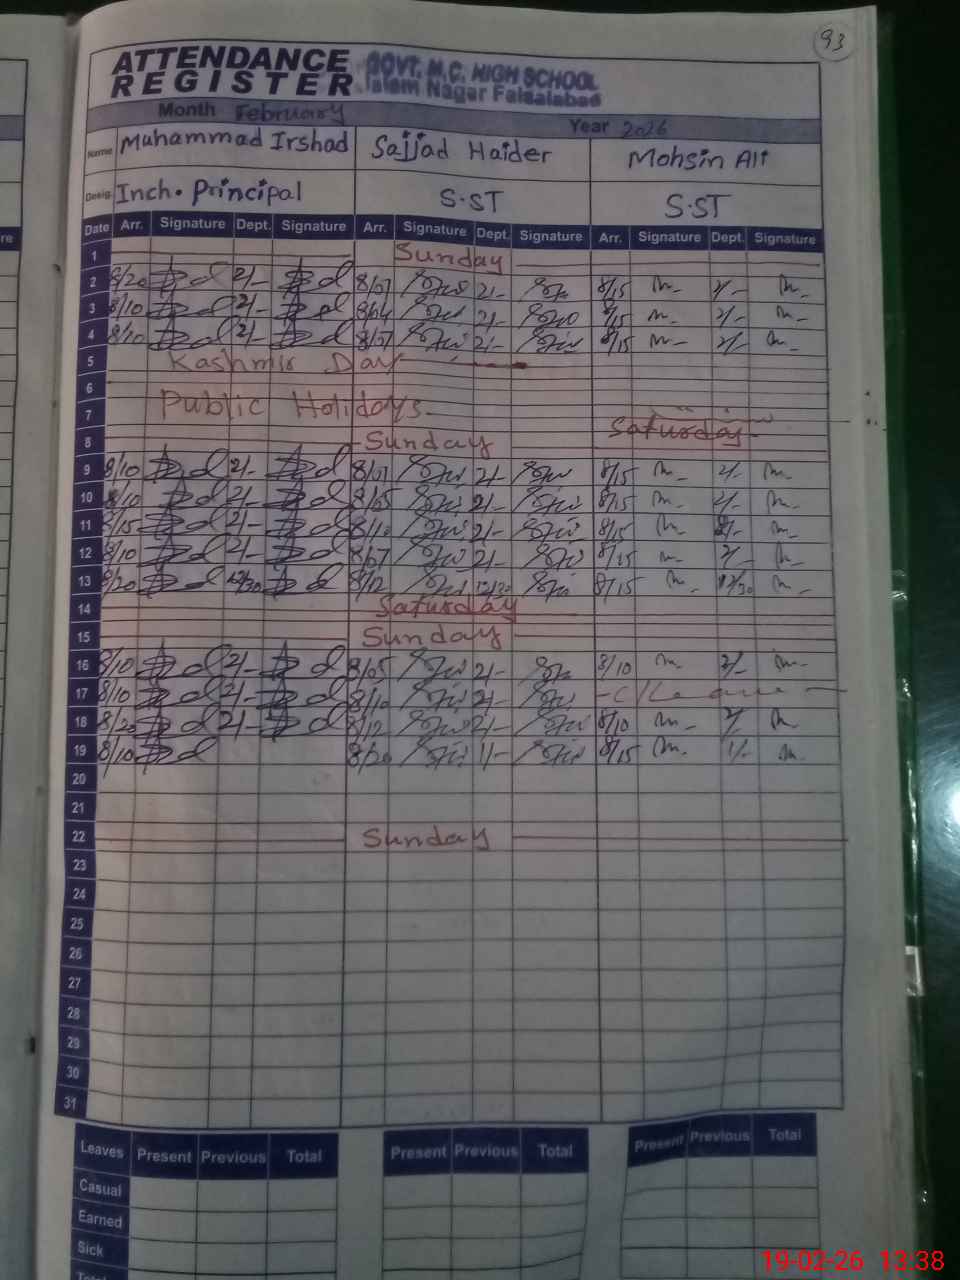 93
ATTENDANCE REGISTER
GOVT. M.C. HIGH SCHOOL
Islam Nagar Faisalabad
Month February
Year 2026
Name Muhammad Irshad Sajjad Haider Mohsin Ali
Desig. Inch. Principal S.ST S.ST
Date Arr. Signature Dept. Signature Arr. Signature Dept. Signature Arr. Signature Dept. Signature
1 Sunday
2 8/20 2/- 8/07 2/- 8/15 2/-
3 8/10 2/- 2/- 8/15 2/-
4 8/10 2/- 8/07 2/- 8/15 2/-
5 Kashmir Day
6
7 Public Holidays
Saturday
8 Sunday
9 8/10 2/- 8/07 2/- 8/15 2/-
10 8/10 2/- 8/05 2/- 8/15 2/-
11 8/15 2/- 8/10 2/- 8/15 2/-
12 8/10 2/- 8/07 2/- 8/15 2/-
13 8/20 12/30 8/12 12/30 8/15 12/30
14 Saturday
15 Sunday
16 8/10 2/- 8/05 2/- 8/10 2/-
17 8/10 2/- 8/10 2/- C/Leave
18 8/20 2/- 8/12 2/- 8/10 2/-
19 8/10 8/20 1/- 8/15 1/-
20
21
22 Sunday
23
24
25
26
27
28
29
30
31
Leaves Present Previous Total Present Previous Total Present Previous Total
Casual
Earned
Sick
19-02-26 13:38